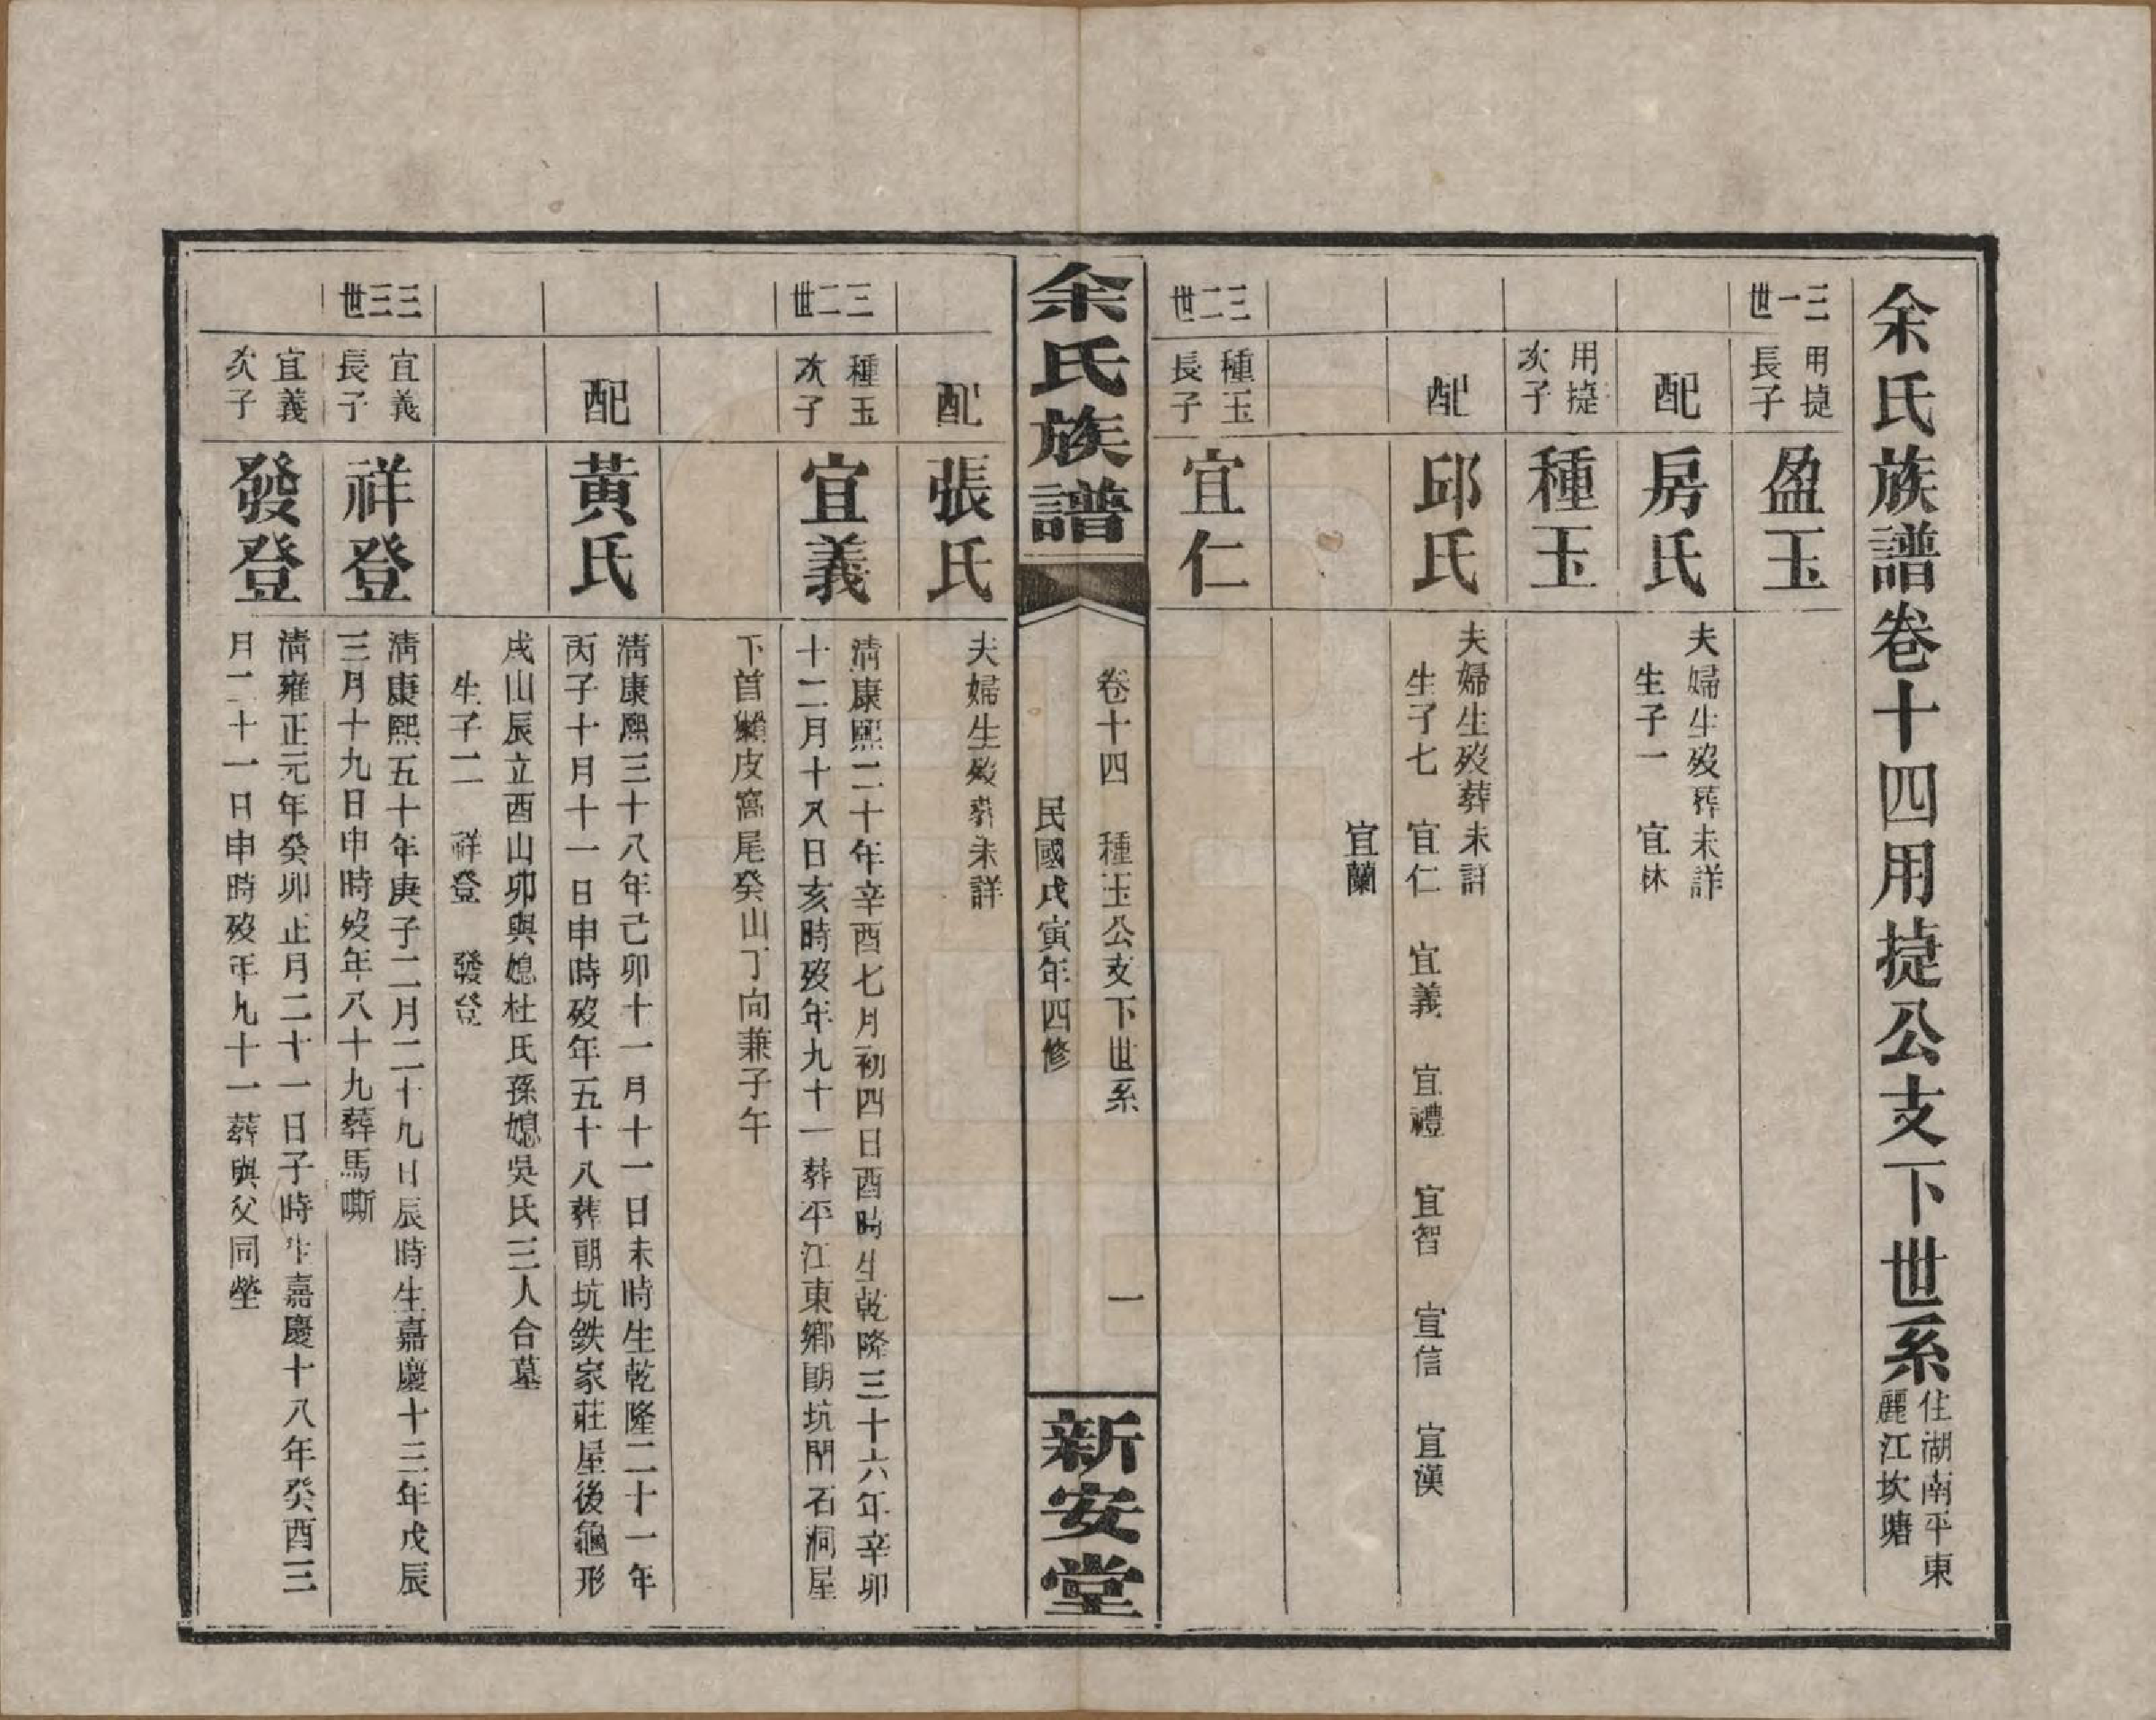 余氏族譜卷十四用㨗公支下世系
住湖南平東
麗江坎塘
三一世
用㨗
長子
盈玉
配
房氏
夫婦生歿葬未詳
生子一 宜林
用㨗
次子
種玉
配
邱氏
夫婦生歿葬未詳
生子七 宜仁 宜義 宜禮 宜智 宜信 宜漢
宜蘭
三二世
種玉
長子
宜仁
余氏族譜
卷十四 種玉公支下世系 一
民國戊寅年四修
新安堂
配
張氏
夫婦生歿葬未詳
三二世
種玉
次子
宜義
清康熙二十年辛酉七月初四日酉時生乾隆三十六年辛卯
十二月十八日亥時歿年九十一葬平江東鄉蓢坑閂石洞屋
下首獺皮窩尾癸山丁向兼子午
配
黃氏
清康熙三十八年己卯十一月十一日未時生乾隆二十一年
丙子十月十一日申時歿年五十八葬蓢坑鉄家莊屋後龜形
戌山辰立酉山卯與媳杜氏孫媳吳氏三人合墓
生子二 祥登 發登
三三世
宜義
長子
祥登
清康熙五十年庚子二月二十九日辰時生嘉慶十三年戊辰
三月十九日申時歿年八十九葬馬嘶
宜義
次子
發登
清雍正元年癸卯正月二十一日子時生嘉慶十八年癸酉三
月二十一日申時歿年九十一葬與父同塋